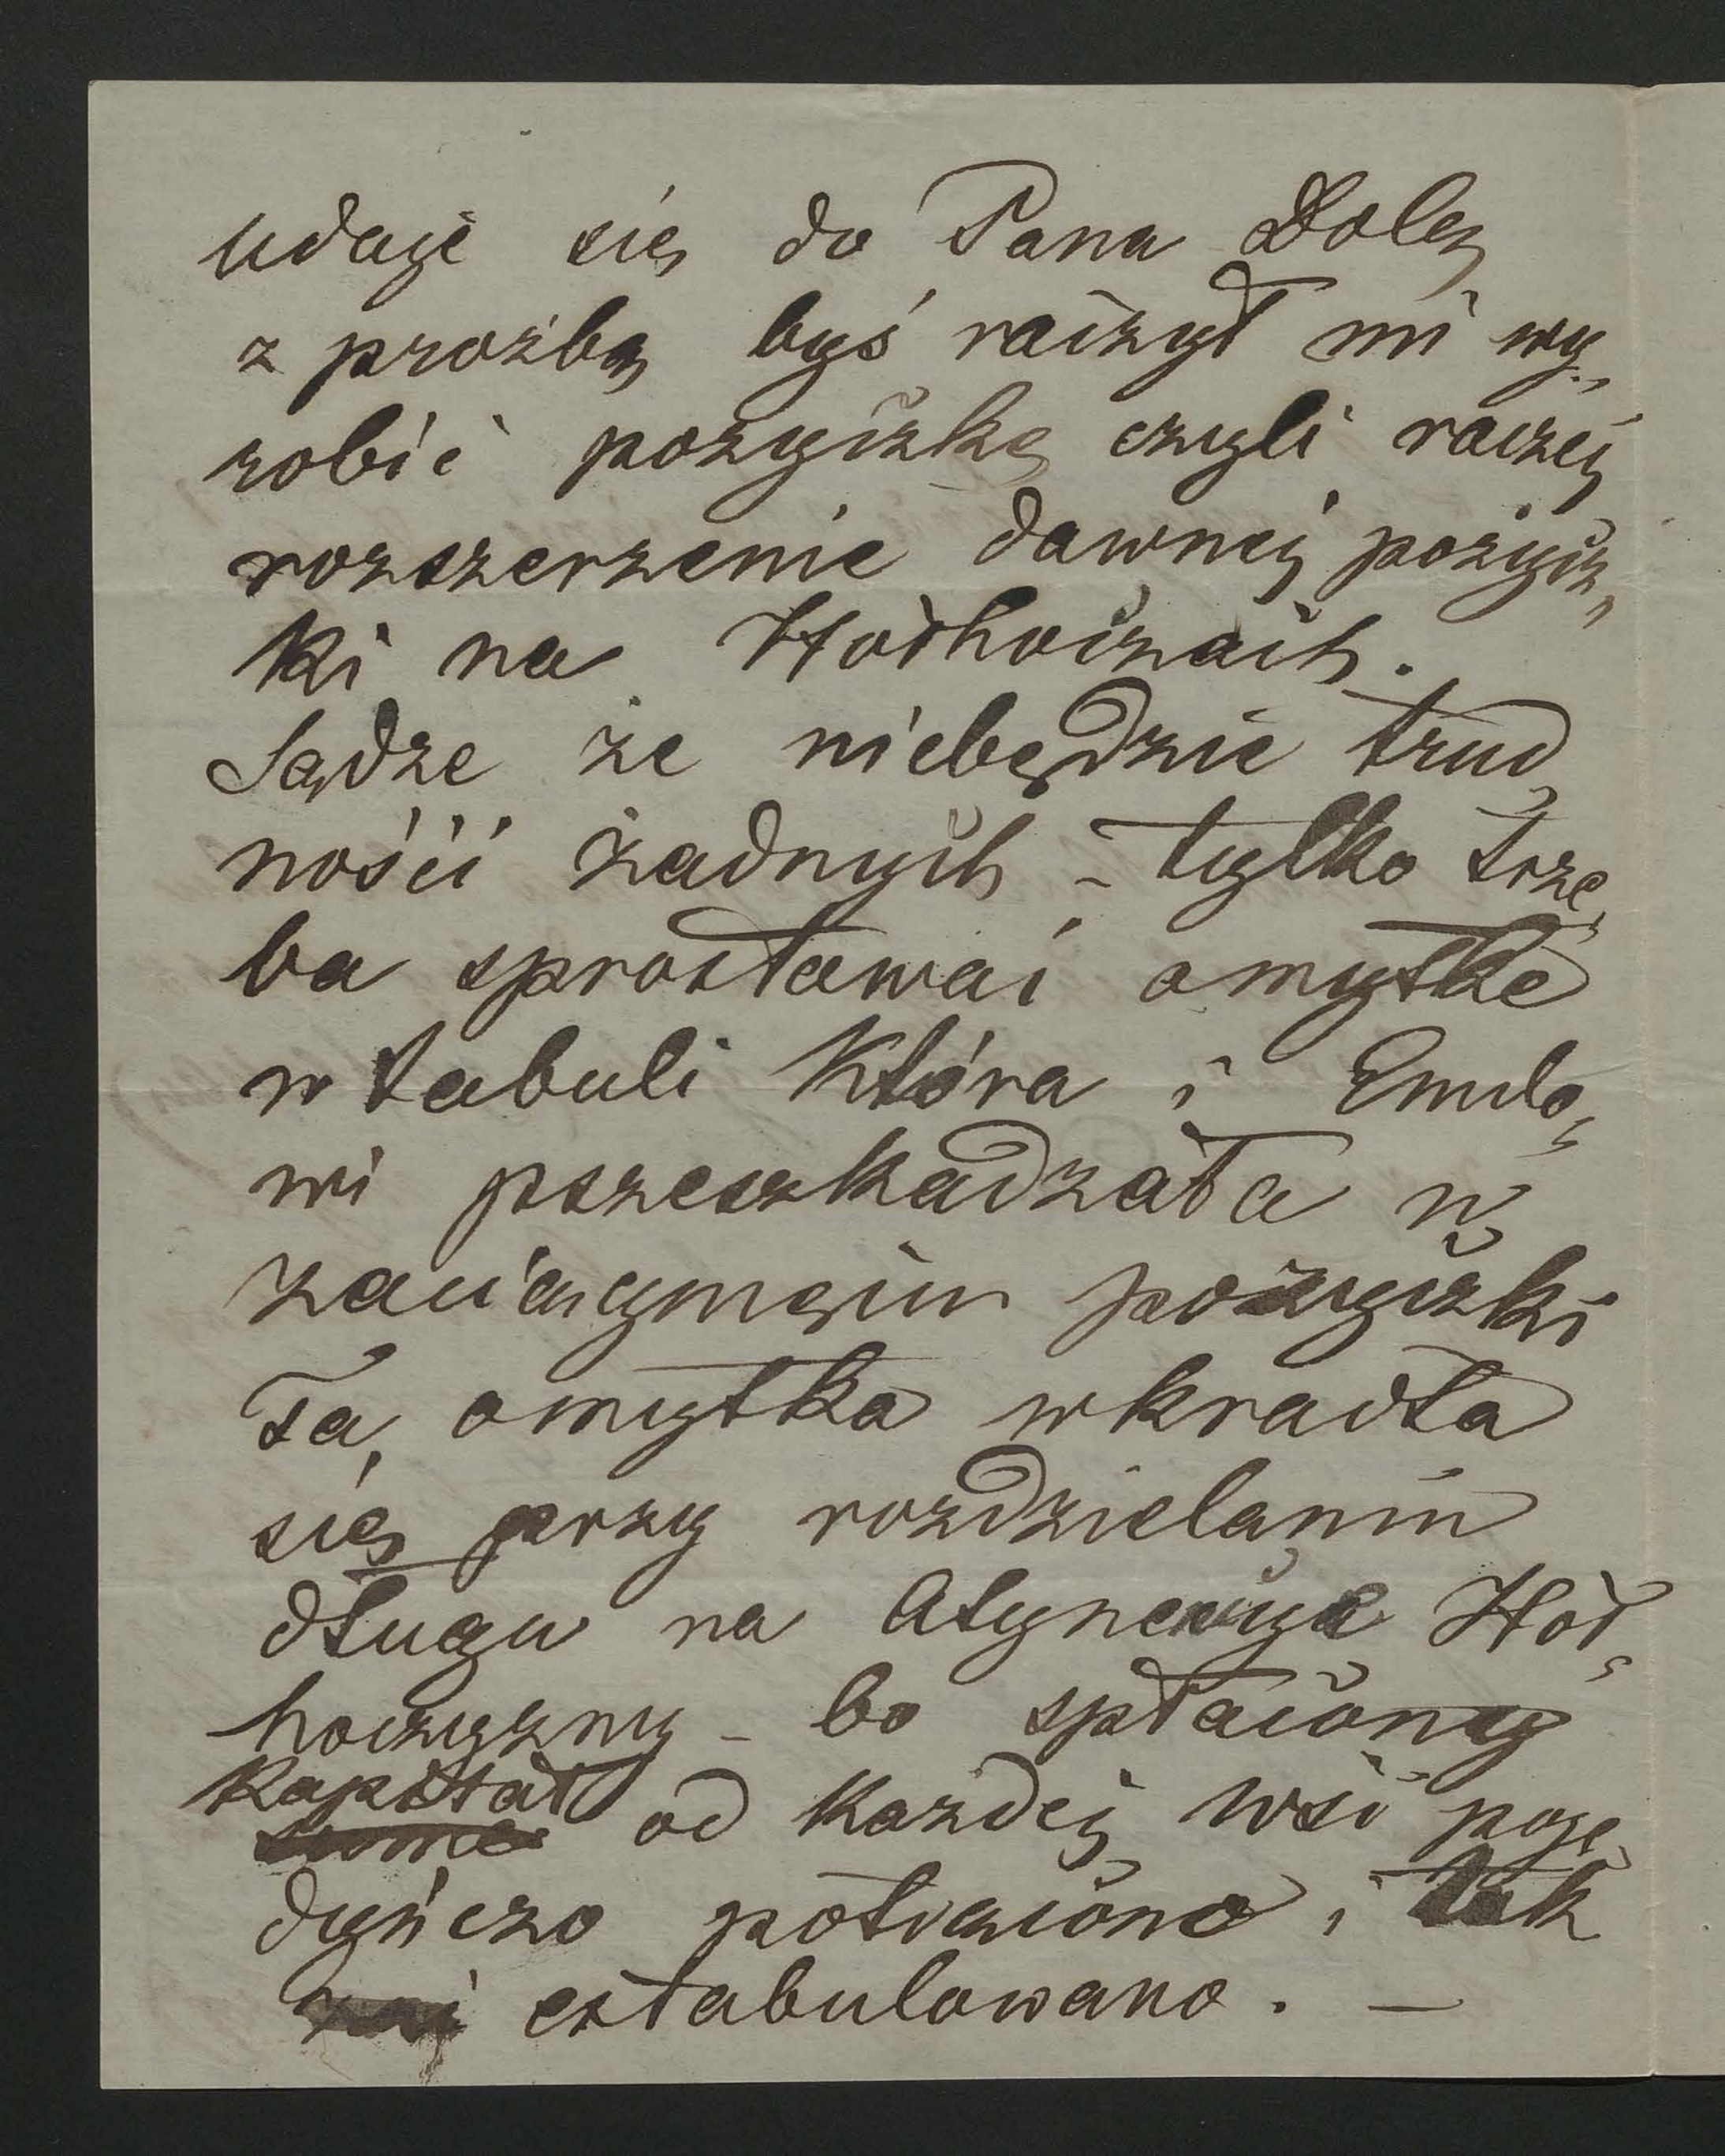 udaję się do Pana Dolę
z proźbą byś raczył mi wy„
robić pożyczkę czyli raczej
rozszerzenie dawnej pożycz„
ki na Hołhoczach.
Sądze że niebędzie trud„
ności żadnych – tylko trze„
ba sprostować omyłkę
w tabuli która i Emilo„
wi przeszkadzała w
zaciągnięciu pożyczki
Ta omyłka wkradła
się przy rozdzielaniu
długu na Hoł„
hoczyzny – bo spłacony
kapitał od każdej wsi poje„
dyńczo potrącono i tak
estabulowano. —